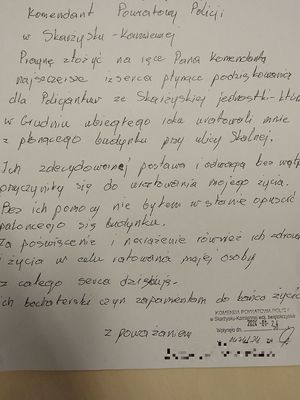 Komendant Powiatowy Policji
w Skarżysku-Kamiennej
Pragnę złożyć na ręce Pana Komendanta
najszczersze z serca płynące podziękowania
dla Policjantów ze Skarżyskiej jednostki-któr
w Grudniu ubiegłego roku uratowali mnie
z płonącego budynku przy ulicy
Ich zdecydowana postawa i odwaga bez wątp
przyczyniły się do uratowania mojego życia.
Bez ich pomocy nie byłbym w stanie opuścić
palącego się budynku.
Za poświęcenie i narażenie również ich zdrowi
i życia w celu ratowania mojej osoby
z całego serca dziękuję.
ich bohaterski czyn zapamiętam do końca życia
z poważaniem
KOMENDA POWIATOWA POLICJI
w Skarżysku-Kamiennej woj. świętokrzyskie
Wpłynęło dn.